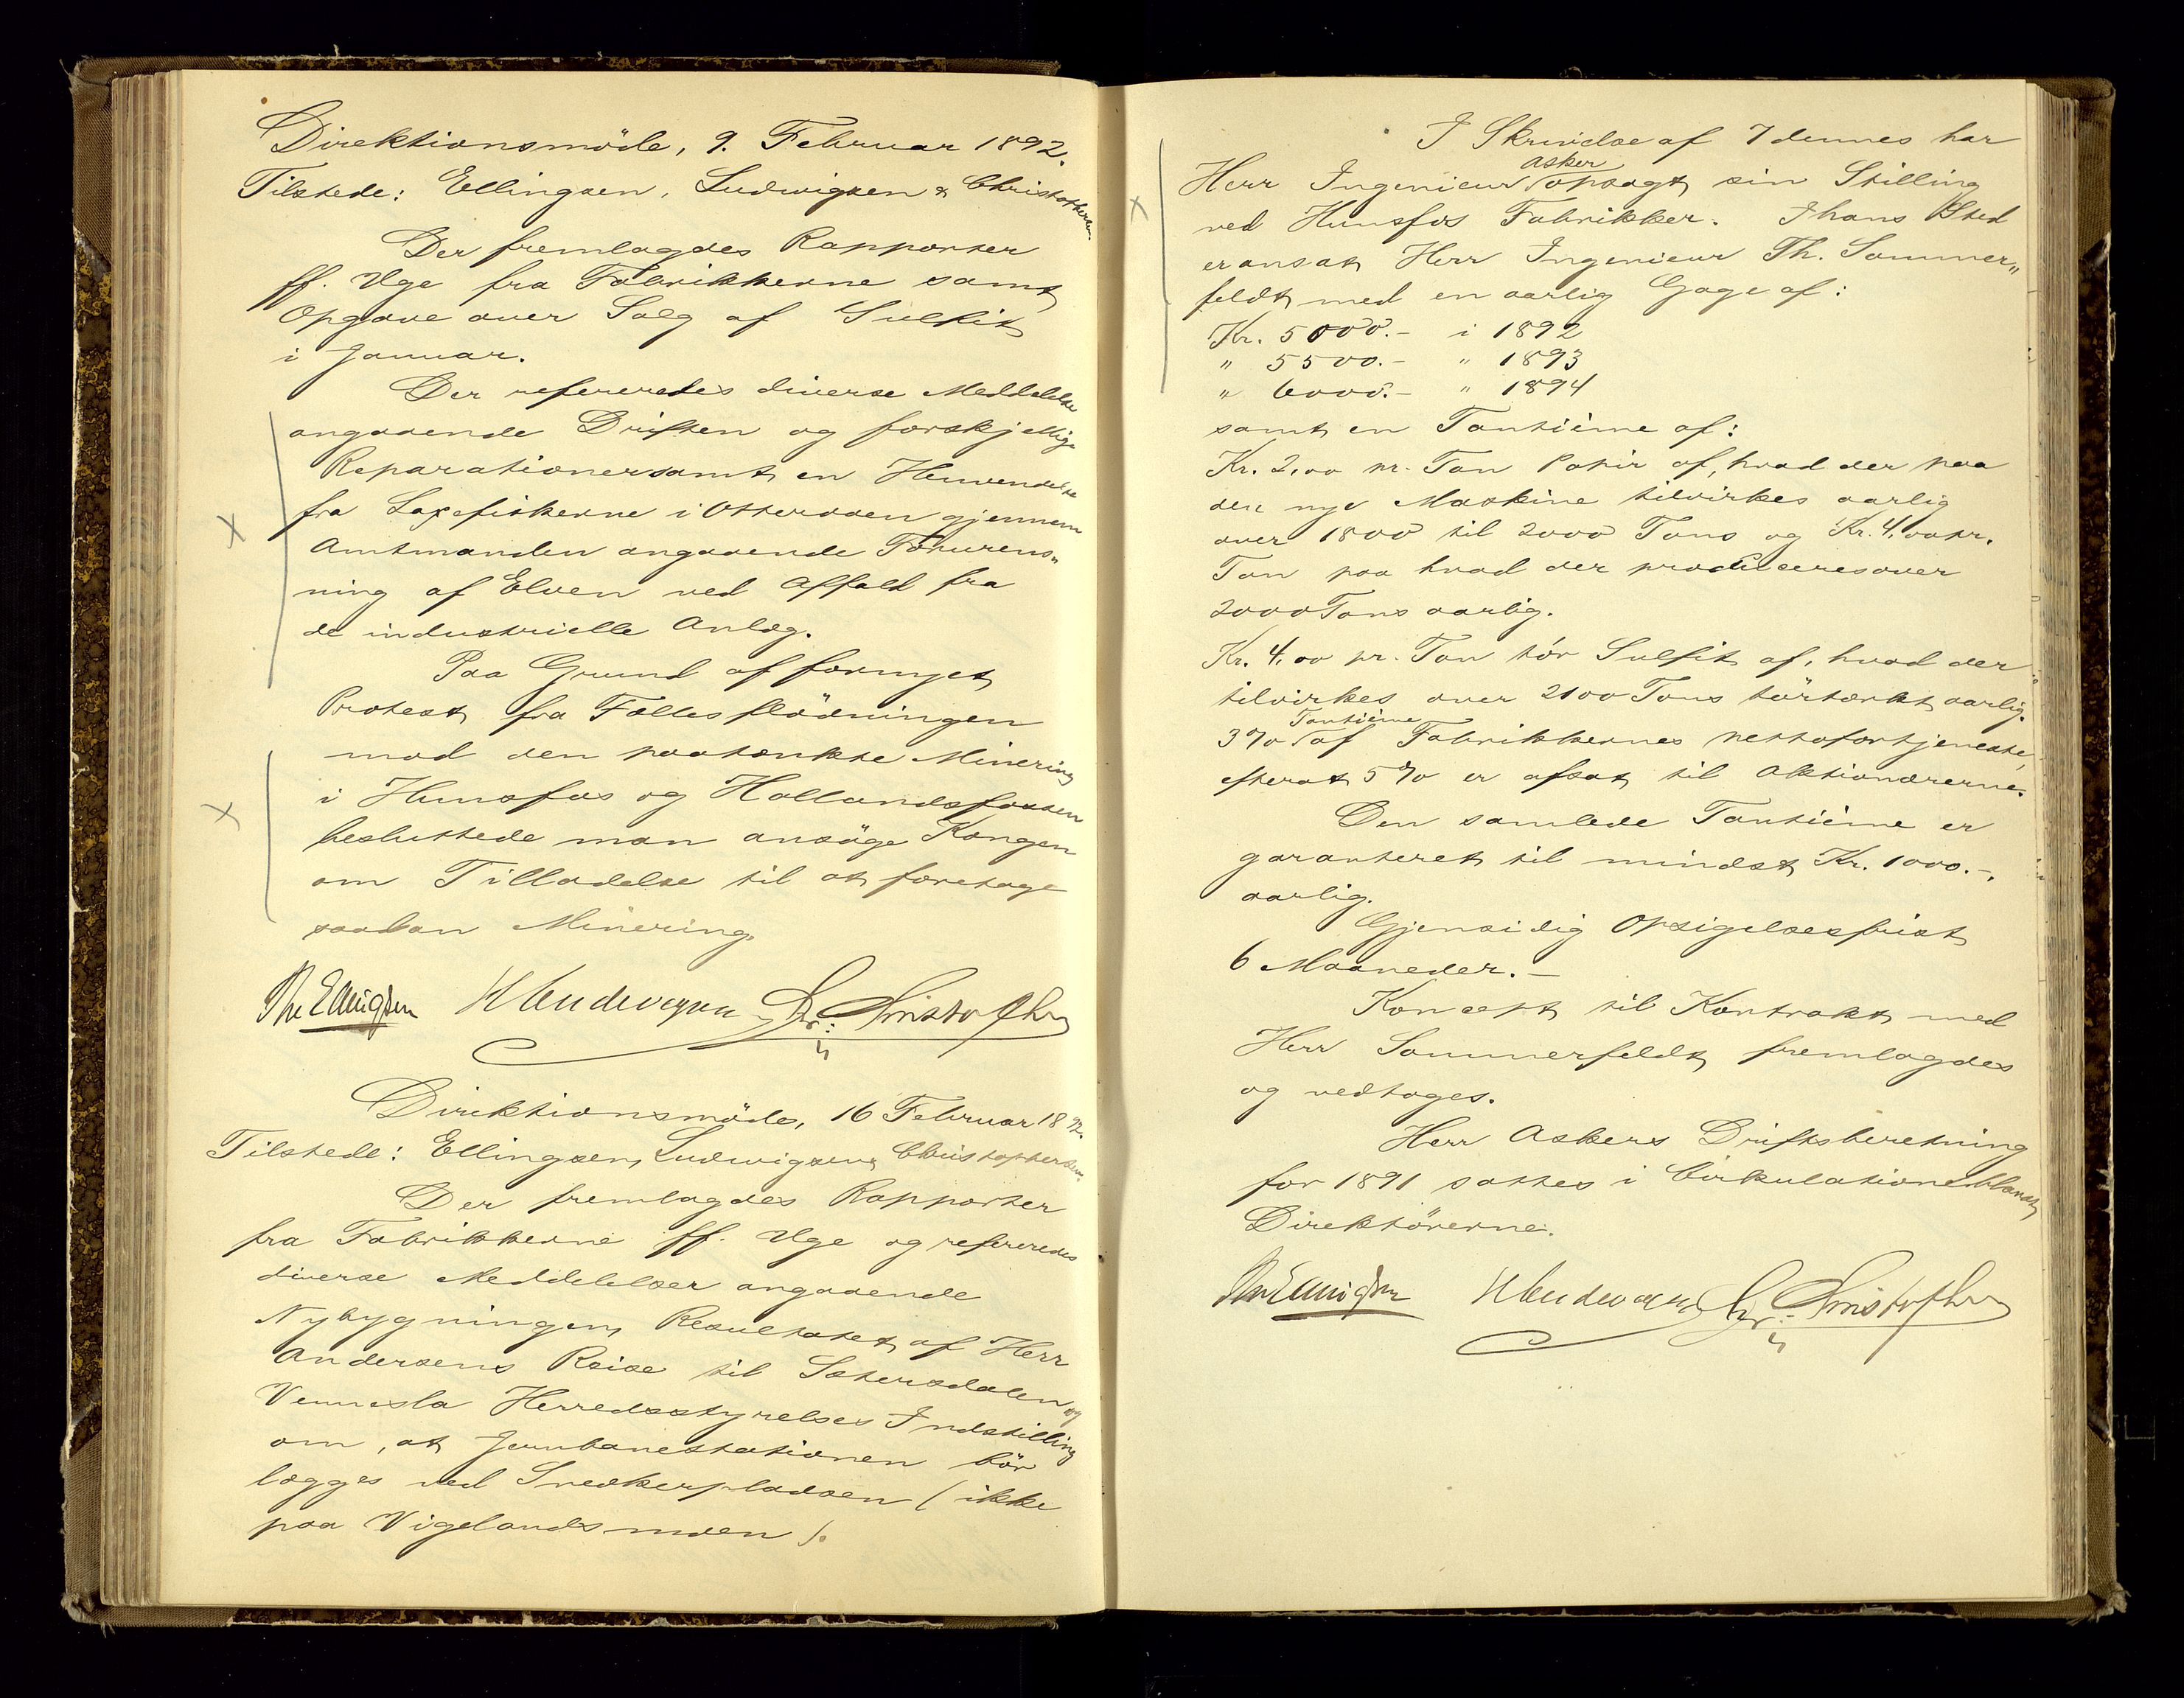 Direktionsmöde, 9. Februar 1892.
Tilstede: Ellingsen, Ludwigsen & Christophersen.
Der fremlagdes Rapporter
ff. Uge fra Fabrikkerne samt
Opgave over Salg af Sulfit
i Januar.
Der refereredes diverse Meddelelser
angaaende Driften og forskjellige
Reparationer samt en Henvendelse
fra Laxefiskerne i Otteraaen gjennem
Amtmanden angaaende Forurens„
ning af Elven ved Affald fra
de industrielle Anlæg.
Paa Grund af fornyet
Protest fra Fællesflödningen
mod den paatænkte Minering
i Hunsfos og Hallandsfossen
besluttede man ansöge Kongen
om Tilladelse til at foretage
saadan Minering.
Th Ellingsen H Ludwigsen Chr. Christophersen
Direktionsmöde, 16 Februar 1892.
Tilstede: Ellingsen, Ludwigsen & Christophersen.
Der fremlagdes Rapporter
fra Fabrikkerne ff. Uge og refereredes
diverse Meddelelser angaaende
Nybygningen, Resultatet af Herr
Andersens Reise til Sætersdalen og
Vennesla Herredsstyrelses Indstilling
om, at Jernbanestationen bör
lægges ved Snedkerpladsen (ikke
paa Vigelandsmoen).
I Skrivelse af 7 dennes har
Asker
Herr Ingenieur √ opsagt sin Stilling
ved Hunsfos Fabrikker. I hans Sted
er ansat Herr Ingenieur Th. Sommer„
feldt med en aarlig Gage af:
Kr. 5000.- i 1892
" 5500.- " 1893
" 6000.- " 1894
samt en Tantième af:
Kr. 2,00 pr. Ton Papir af, hvad der paa
den nye Maskine tilvirkes aarlig
over 1800 til 2000 Tons og Kr. 4,00 pr.
Ton paa hvad der produceres over
2000 Tons aarlig.
Kr. 4,00 pr. Ton tör Sulfit af, hvad der
tilvirkes over 2100 Tons törtænkt aarlig.
Tantième
3% √ af Fabrikkernes nettofortjeneste,
efterat 5% er afsat til Aktionærerne.
Den samlede Tantième er
garanteret til mindst Kr. 1000.-.
aarlig.
Gjensidig Opsigelsesfrist
6 Maaneder.-
Koncept til Kontrakt med
Herr Sommerfeldt fremlagdes
og vedtoges.
Herr Askers Driftsberetning
for 1891 sattes i Cirkulation blandt
Direktörerne.
Th Ellingsen H Ludwigsen Chr. Christophersen